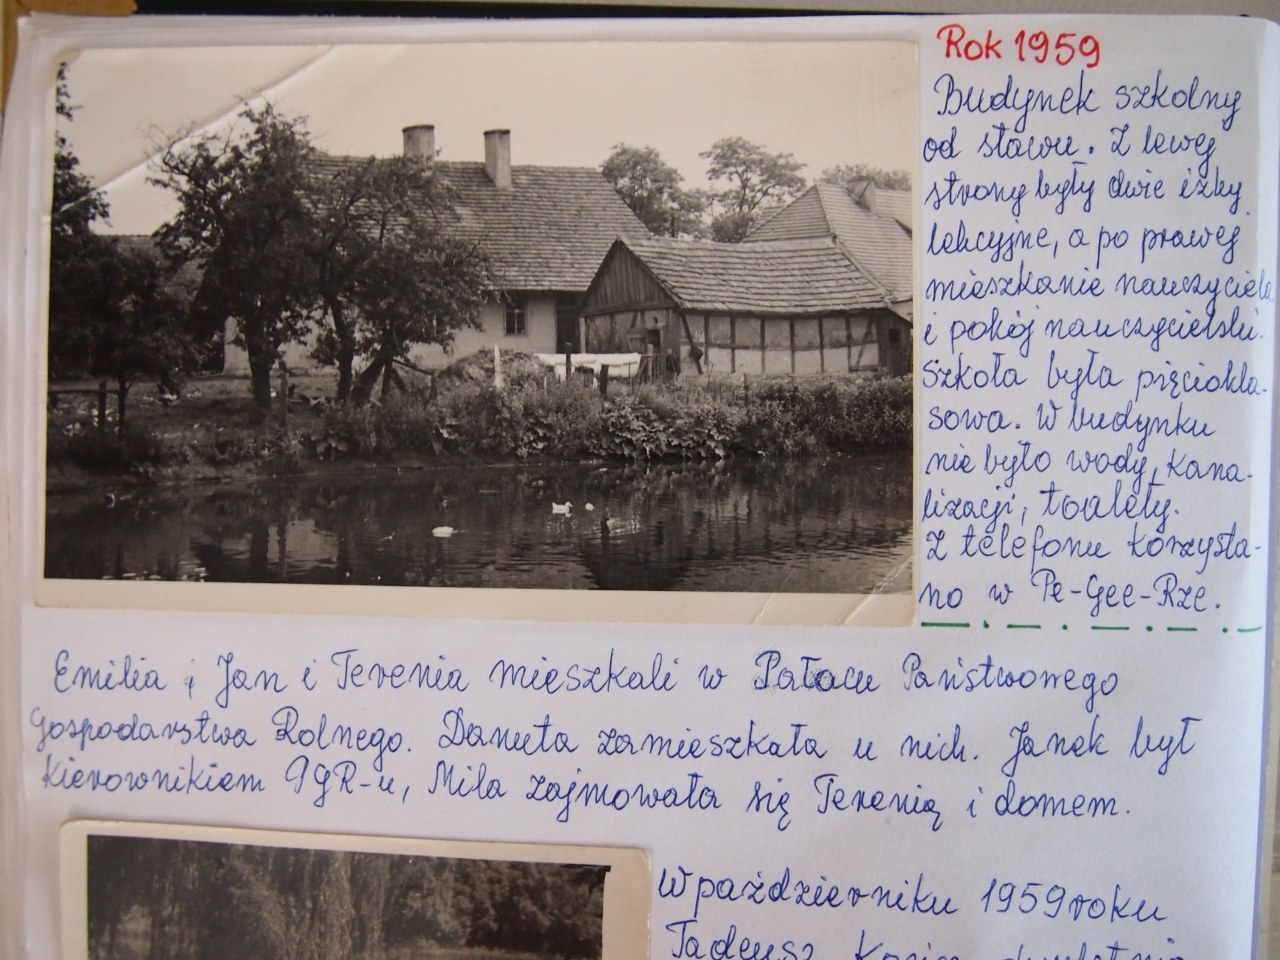 Rok 1959
Budynek szkolny
od stawu. Z lewej
strony były dwie izby
lekcyjne, a po prawej
mieszkanie nauczyciela
i pokój nauczycielski.
Szkoła była pięciokla-
sowa. W budynku
nie było wody, kana-
lizacji, toalety.
Z telefonu korzysta-
no w Pe-Gee-Rze.
Emilia i Jan i Terenia mieszkali w Pałacu Państwowego
Gospodarstwa Rolnego. Danuta zamieszkała u nich. Janek był
kierownikiem PGR-u, Mila zajmowała się Terenią i domem.
W październiku 1959 roku
Tadeusz